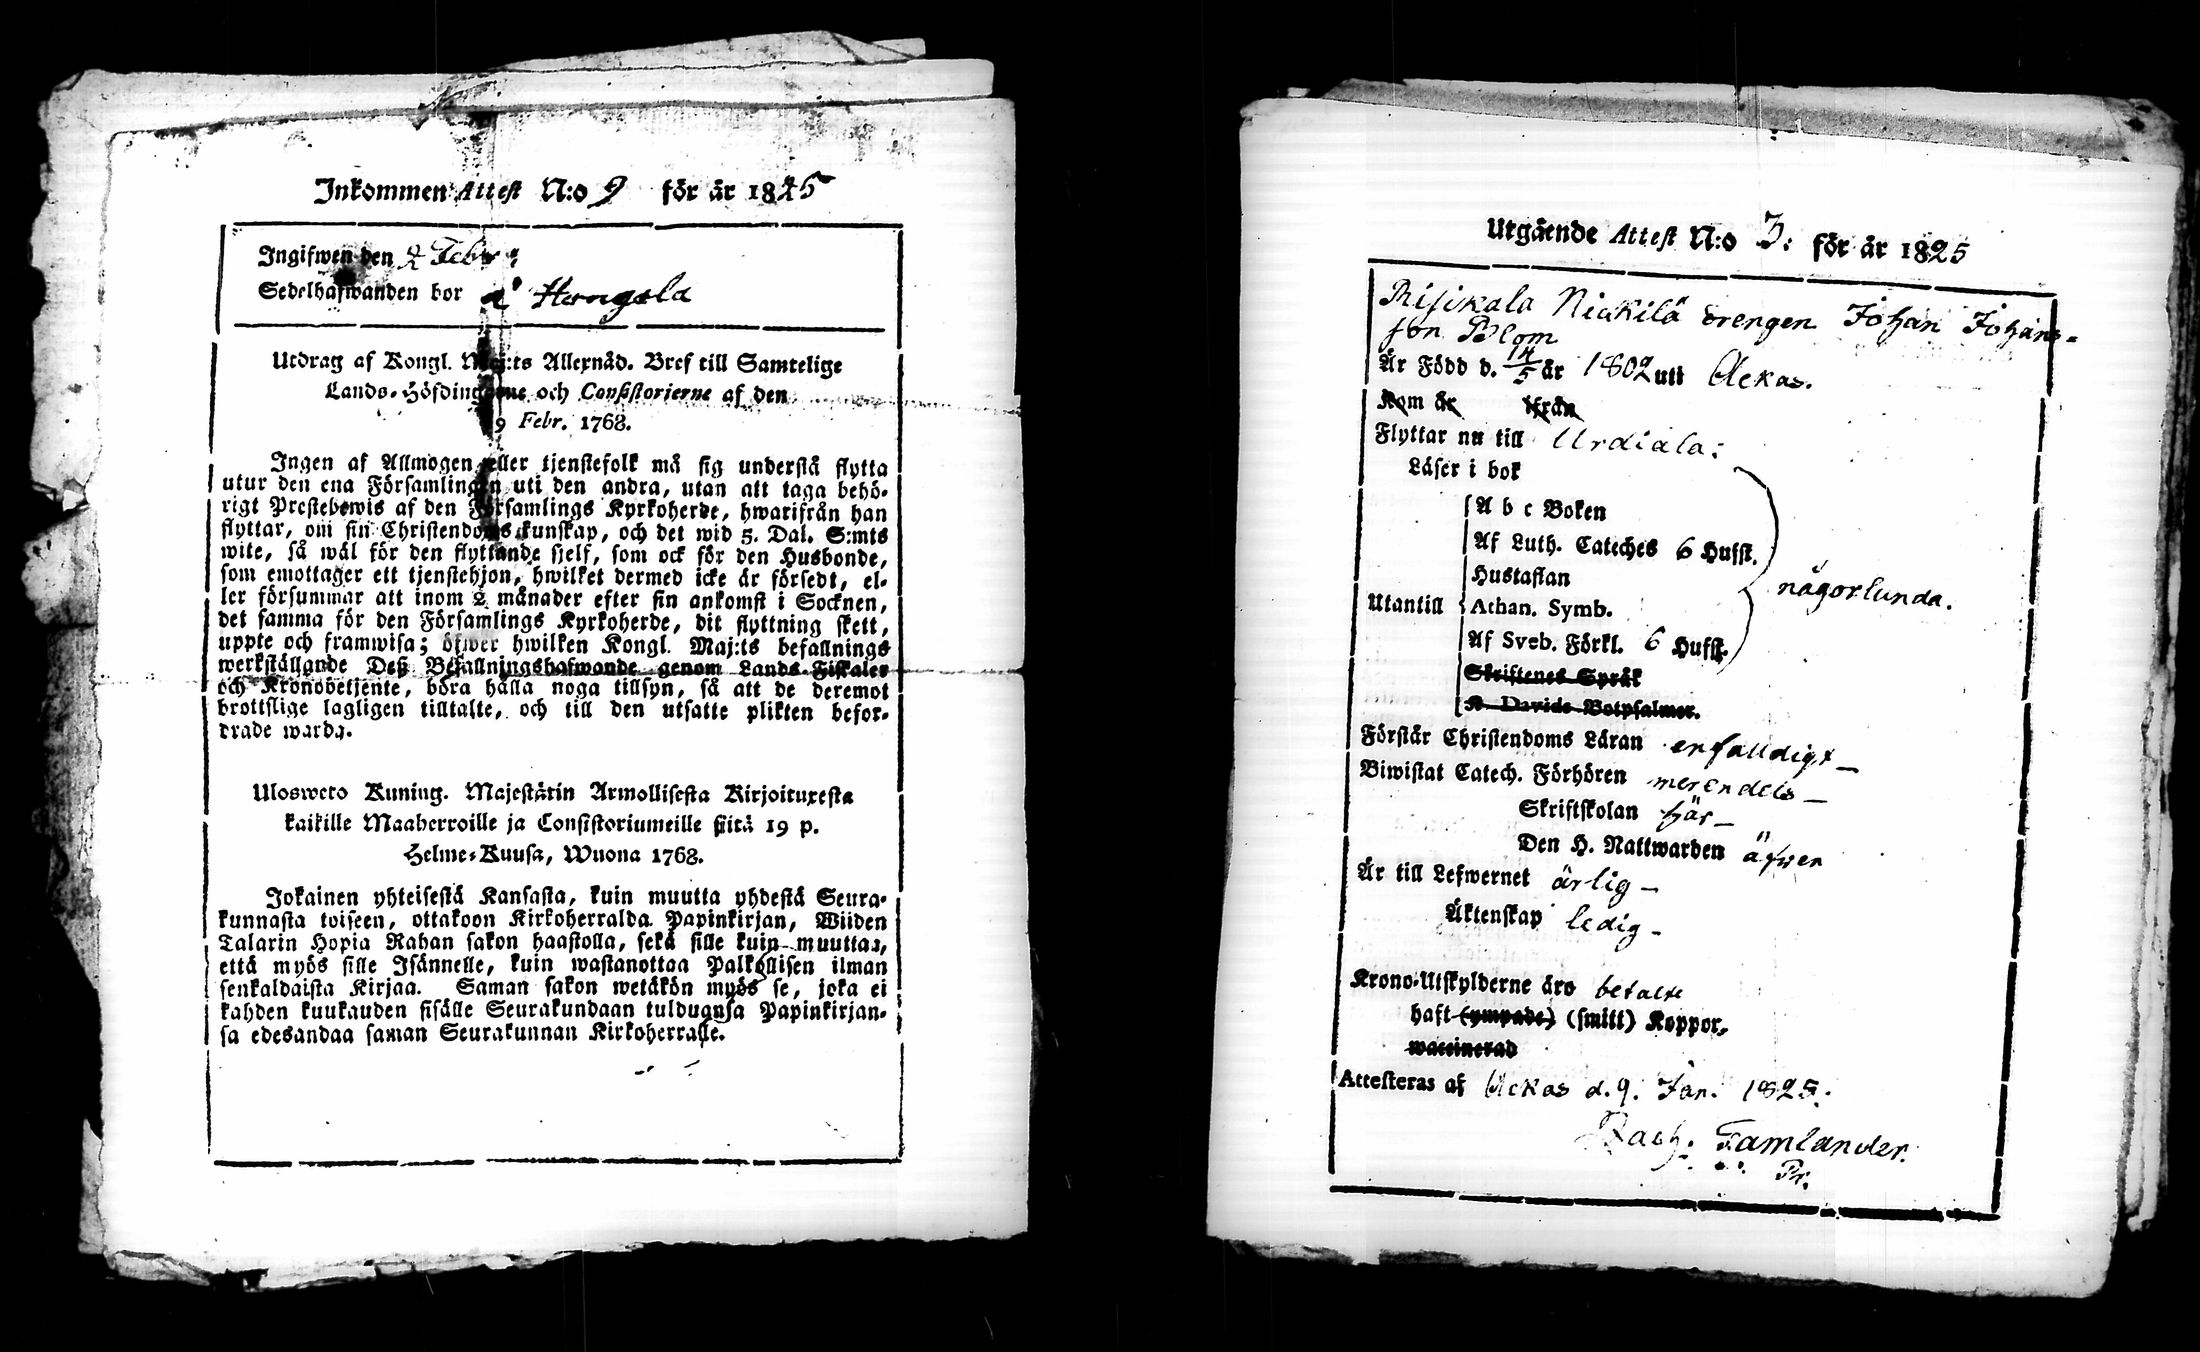 Inkommen Attest N:o 9 för år 1825
Ingifwen den 2 Febr
Sedelhafwanden bor á Hongola
Utdrag af Kongl. Maj:ts Allernåd. Bref till Samtelige
Lands-Höfdingarne och Consistorierne af den
19 Febr. 1768.
Ingen af Allmogen eller tjenstefolk må sig understå flytta
utur den ena Församlingen uti den andra, utan att taga behö-
rigt Prestebewis af den Församlings Kyrkoherde, hwarifrån han
flyttar, om sin Christendoms kunskap, och det wid 5. Dal. S:mts
wite, så wäl för den flyttande sjelf, som ock för den Husbonde,
som emottager ett tjenstehjon, hwilket dermed icke är försedt, el-
ler försummar att inom 2 månader efter sin ankomst i Socknen,
det samma för den Församlings Kyrkoherde, dit flyttning skett,
uppte och framwisa; öfwer hwilken Kongl. Maj:ts befallnings
werkställande Deß Befallningshafwande genom Lands-Fiskaler
och Kronobetjente, böra hålla noga tillsyn, så att de deremot
brottslige lagligen tilltalte, och till den utsatte plikten befor-
drade warda.
Ulosweto Kuning. Majestätin Armollisesta Kirjoituxesta
kaikille Maaherroille ja Consistoriumeille siitä 19 p.
Helme-Kuusa, Wuona 1768.
Jokainen yhteisestä Kansasta, kuin muutta yhdestä Seura-
kunnasta toiseen, ottakoon Kirkoherralda Papinkirjan, Wiiden
Talarin Hopia Rahan sakon haastolla, sekä sille kuin muuttaa,
että myös sille Isännelle, kuin wastanottaa Palkollisen ilman
senkaldaista Kirjaa. Saman sakon wetäkön myös se, joka ei
kahden kuukauden sisälle Seurakundaan tulduansa Papinkirjan-
sa edesandaa saman Seurakunnan Kirkoherralle.
Utgående Attest N:o 3: för år 1825
Risikala Nickilä drengen Johan Johans-
son Blom
Är Född d. 14/5 år 1802 uti Ackas.
Kom år ifrån
Flyttar nu till Urdiala:
Läser i bok
A b c Boken
Af Luth. Cateches 6 Hufst.
Hustaflan
någorlunda.
Utantill Athan. Symb.
Af Sveb. Förkl. 6 Hufst.
Skriftenes Språk
K. Davids Botpsalmer.
Förstår Christendoms Läran enfalldigt
Biwistat Catech. Förhören merendels
Skriftskolan här
Den H. Nattwarden äfwen
Är till Lefwernet ärlig
Äktenskap ledig
Krono-Utskylderne äro betalte
haft (ympade) (smitt) Koppor,
waccinerad
Attesteras af Ackas d. 9. Jan. 1825.
Zach. Tamlander.
Pr.